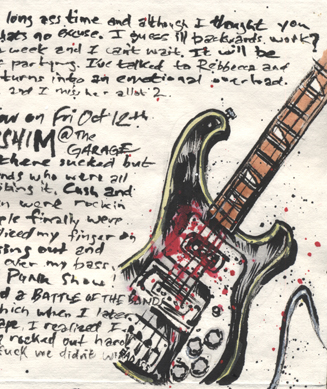 long ass time and although I thought you
hats no excuse. I guess ill backwards, work?
week and I cant wait. It will be
partying. I've talked to Rebbecca and
turns into an emotional overload.
and I miss her allot
ow on Fri Oct 12th
SHIM @ The
GARAGE
there sucked but
nds who were all
ibing it. Cash and
n were rockin
ple finally were
liced my finger on
sing out and
over my bass,
Punk show!
d a BATTLE OF THE BANDS
hich when I later
ape, I realized I
rocked out hard
uck we didn't wi